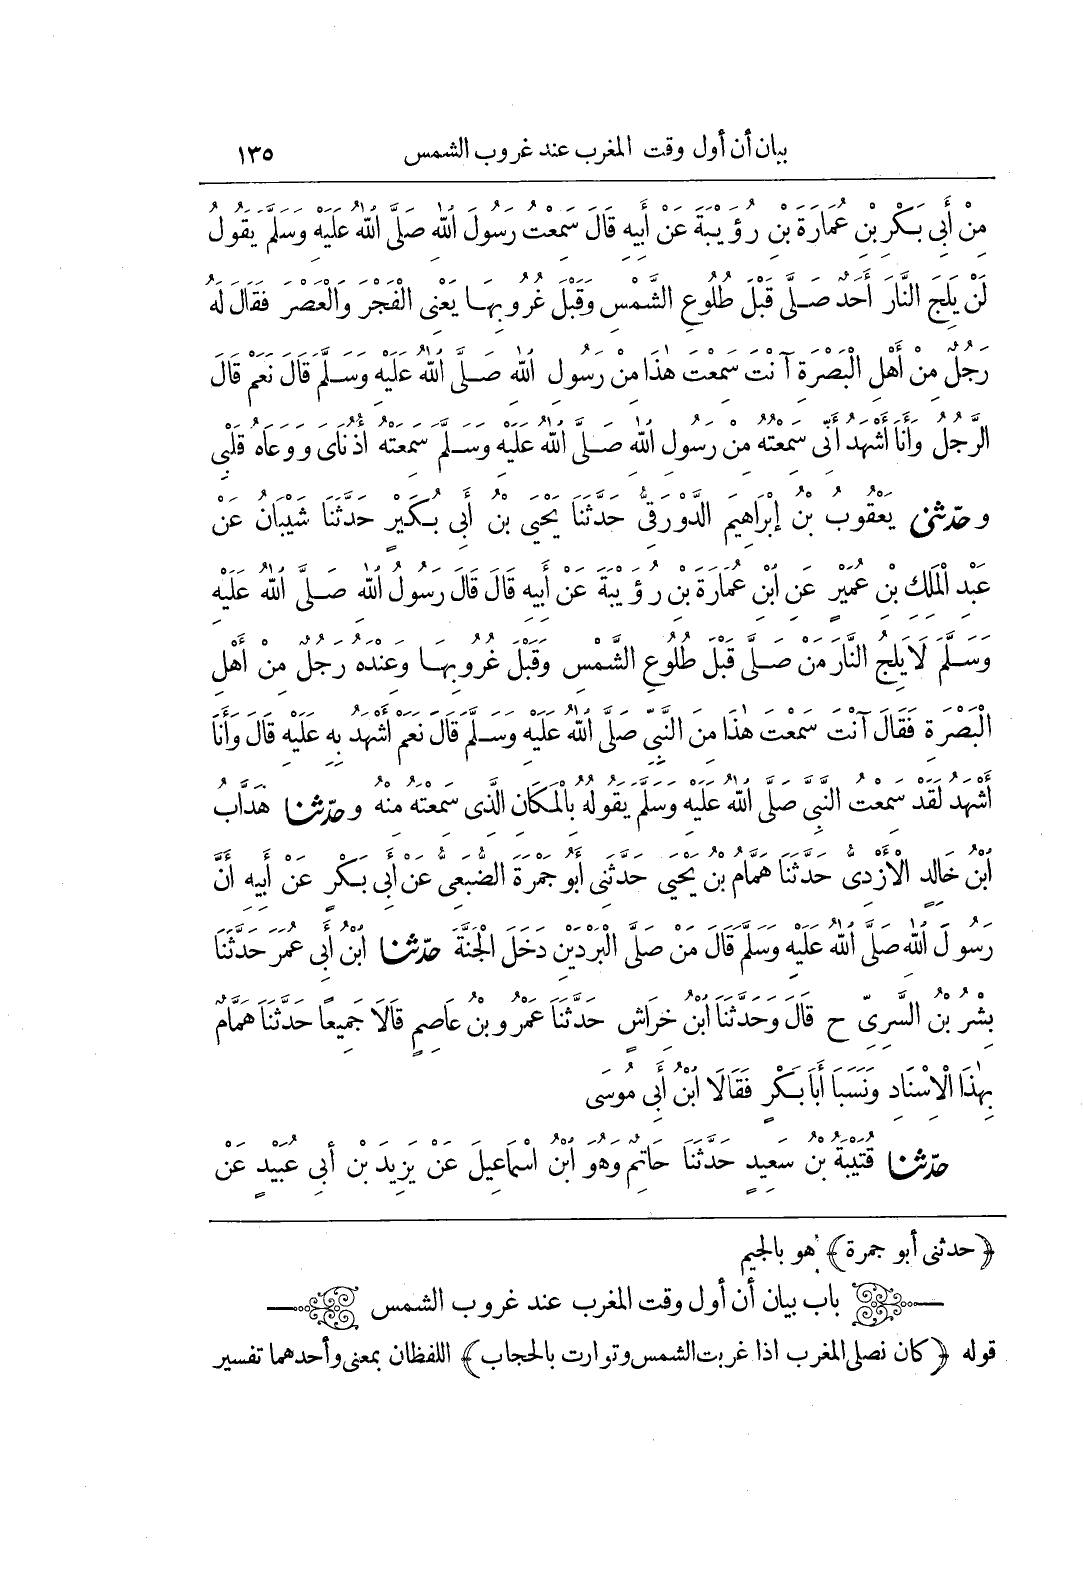 بيان أن أول وقت المغرب عند غروب الشمس ١٣٥
مِنْ أَبِى بَكْرِ بْنِ عُمَارَةَ بْنِ رُؤَيْبَةَ عَنْ أَبِيهِ قَالَ سَمِعْتُ رَسُولَ اللهِ صَلَّى اللهُ عَلَيْهِ وَسَلَّمَ يَقُولُ
لَنْ يَلِجَ النَّارَ أَحَدٌ صَلَّى قَبْلَ طُلُوعِ الشَّمْسِ وَقَبْلَ غُرُوبِهَا يَعْنِى الْفَجْرَ وَالْعَصْرَ فَقَالَ لَهُ
رَجُلٌ مِنْ أَهْلِ الْبَصْرَةِ آنْتَ سَمِعْتَ هٰذَا مِنْ رَسُولِ اللهِ صَلَّى اللهُ عَلَيْهِ وَسَلَّمَ قَالَ نَعَمْ قَالَ
الرَّجُلُ وَأَنَا أَشْهَدُ أَنِّى سَمِعْتُهُ مِنْ رَسُولِ اللهِ صَلَّى اللهُ عَلَيْهِ وَسَلَّمَ سَمِعَتْهُ أُذُنَاىَ وَوَعَاهُ قَلْبِى
وحدّثنى يَعْقُوبُ بْنُ إِبْرَاهِيمَ الدَّوْرَقِىُّ حَدَّثَنَا يَحْيَى بْنُ أَبِى بُكَيْرٍ حَدَّثَنَا شَيْبَانُ عَنْ
عَبْدِ الْمَلِكِ بْنِ عُمَيْرٍ عَنِ ابْنِ عُمَارَةَ بْنِ رُؤَيْبَةَ عَنْ أَبِيهِ قَالَ قَالَ رَسُولُ اللهِ صَلَّى اللهُ عَلَيْهِ
وَسَلَّمَ لَا يَلِجُ النَّارَ مَنْ صَلَّى قَبْلَ طُلُوعِ الشَّمْسِ وَقَبْلَ غُرُوبِهَا وَعِنْدَهُ رَجُلٌ مِنْ أَهْلِ
الْبَصْرَةِ فَقَالَ آنْتَ سَمِعْتَ هٰذَا مِنَ النَّبِىِّ صَلَّى اللهُ عَلَيْهِ وَسَلَّمَ قَالَ نَعَمْ أَشْهَدُ بِهِ عَلَيْهِ قَالَ وَأَنَا
أَشْهَدُ لَقَدْ سَمِعْتُ النَّبِىَّ صَلَّى اللهُ عَلَيْهِ وَسَلَّمَ يَقُولُهُ بِالْمَكَانِ الَّذِى سَمِعْتَهُ مِنْهُ وحدّثنا هَدَّابُ
ابْنُ خَالِدٍ الْأَزْدِىُّ حَدَّثَنَا هَمَّامُ بْنُ يَحْيَى حَدَّثَنِى أَبُو جَمْرَةَ الضُّبَعِىُّ عَنْ أَبِى بَكْرٍ عَنْ أَبِيهِ أَنَّ
رَسُولَ اللهِ صَلَّى اللهُ عَلَيْهِ وَسَلَّمَ قَالَ مَنْ صَلَّى الْبَرْدَيْنِ دَخَلَ الْجَنَّةَ حدّثنا ابْنُ أَبِى عُمَرَ حَدَّثَنَا
بِشْرُ بْنُ السَّرِىِّ ح قَالَ وَحَدَّثَنَا ابْنُ خِرَاشٍ حَدَّثَنَا عَمْرُو بْنُ عَاصِمٍ قَالَا جَمِيعًا حَدَّثَنَا هَمَّامٌ
بِهٰذَا الْإِسْنَادِ وَنَسَبَا أَبَا بَكْرٍ فَقَالَا ابْنُ أَبِى مُوسَى
حدّثنا قُتَيْبَةُ بْنُ سَعِيدٍ حَدَّثَنَا حَاتِمٌ وَهُوَ ابْنُ اسْمَاعِيلَ عَنْ يَزِيدَ بْنِ أَبِى عُبَيْدٍ عَنْ
﴿حدثنى أبو جمرة﴾ هو بالجيم
باب بيان أن أول وقت المغرب عند غروب الشمس
قوله ﴿كان نصلى المغرب اذا غربت الشمس وتوارت بالحجاب﴾ اللفظان بمعنى وأحدهما تفسير